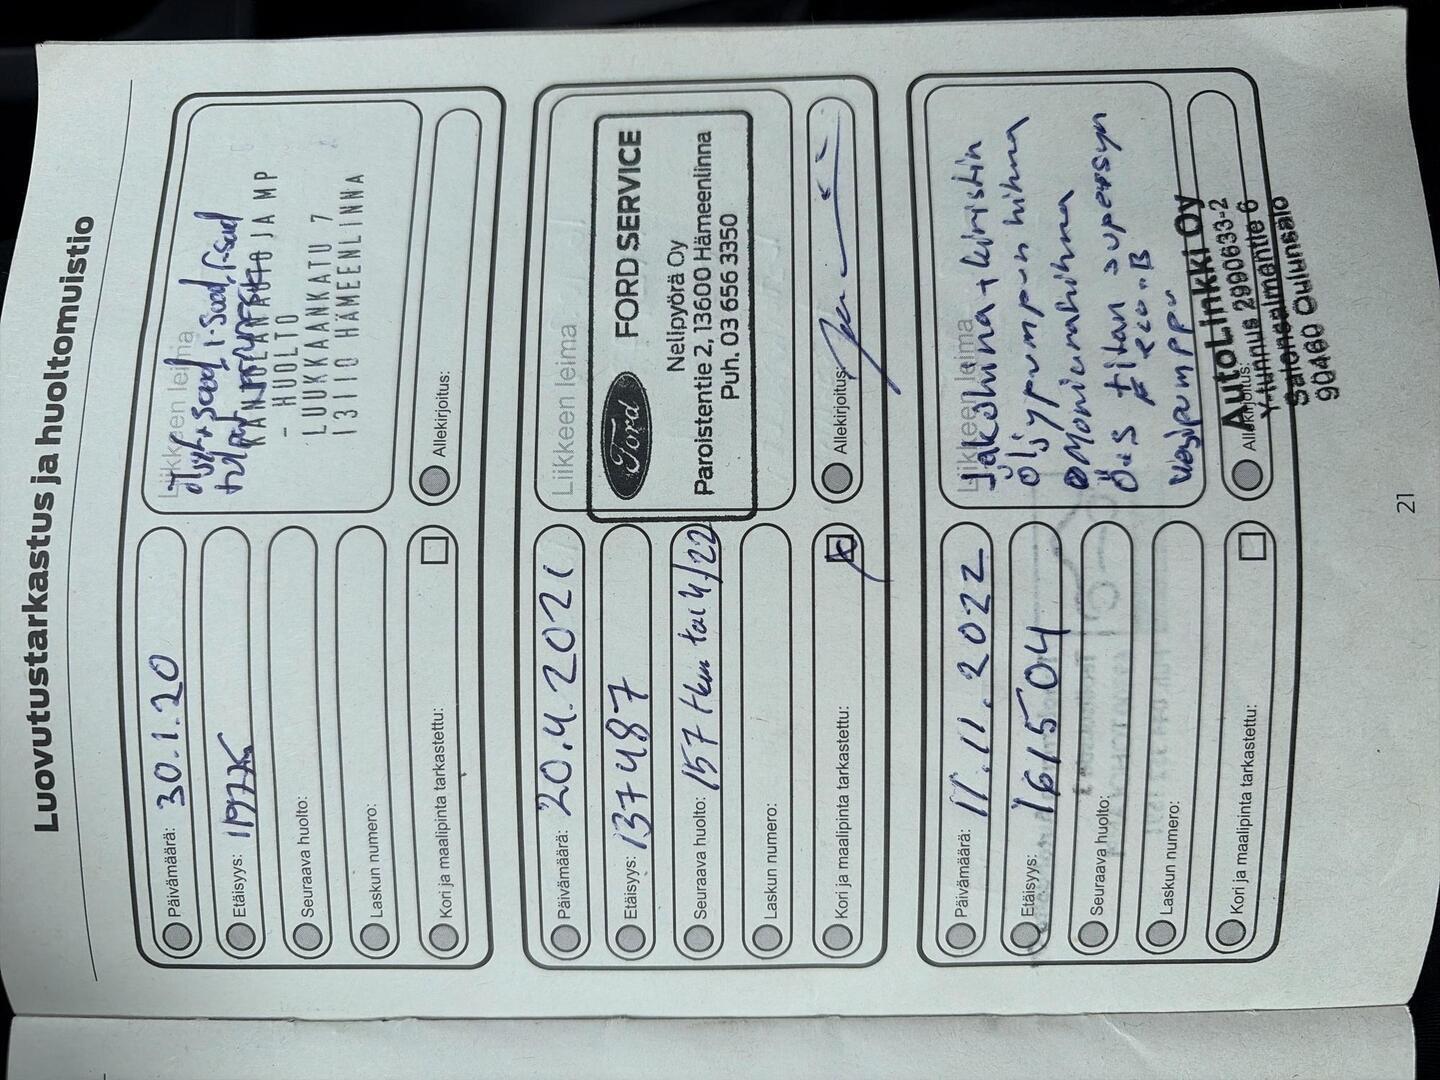 Luovutustarkastus ja huoltomuistio
Päivämäärä: 30.1.20
Etäisyys:
Seuraava huolto:
Laskun numero:
Kori ja maalipinta tarkastettu:
Liikkeen leima
- HUOLTO
LUUKKAANKATU 7
13110 HÄMEENLINNA
Allekirjoitus:
Päivämäärä: 20.4.2021
Etäisyys: 137487
Seuraava huolto: 157 tkm tai 4/22
Laskun numero:
Kori ja maalipinta tarkastettu:
Liikkeen leima
Ford
FORD SERVICE
Nelipyörä Oy
Paroistentie 2, 13600 Hämeenlinna
Puh. 03 656 3350
Allekirjoitus:
Päivämäärä: 11.11.2022
Etäisyys: 161504
Seuraava huolto:
Laskun numero:
Kori ja maalipinta tarkastettu:
Liikkeen leima
Jakohihna + kiristin
Öljypumpun hihna
Moniurahihna
Ö+S titan supersyn
Vesipumppu
AutoLinkki Oy
Y-tunnus 2990633-2
Salonselmäntie 6
90460 Oulunsalo
Allekirjoitus:
21